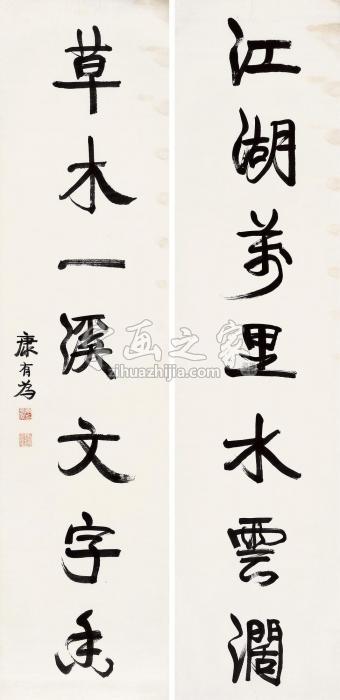 江湖萬里水雲濶
草木一溪文字香
康有為
书画之家
zihuazhijia.com